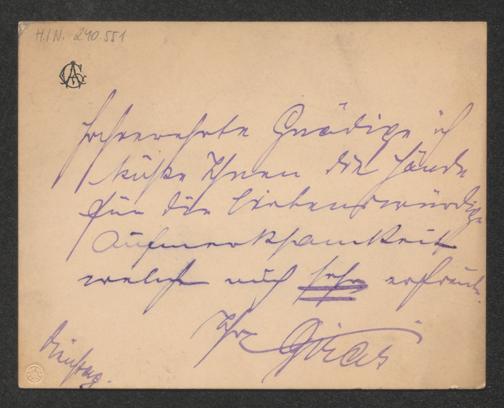 H.I.N. 240.551
Hochverehrte Gnädige ich
küße Ihnen die Hände
für die liebenswürdige
Aufmerksamkeit
welche mich sehr erfreute.
Ihr Girardi
Dienstag.